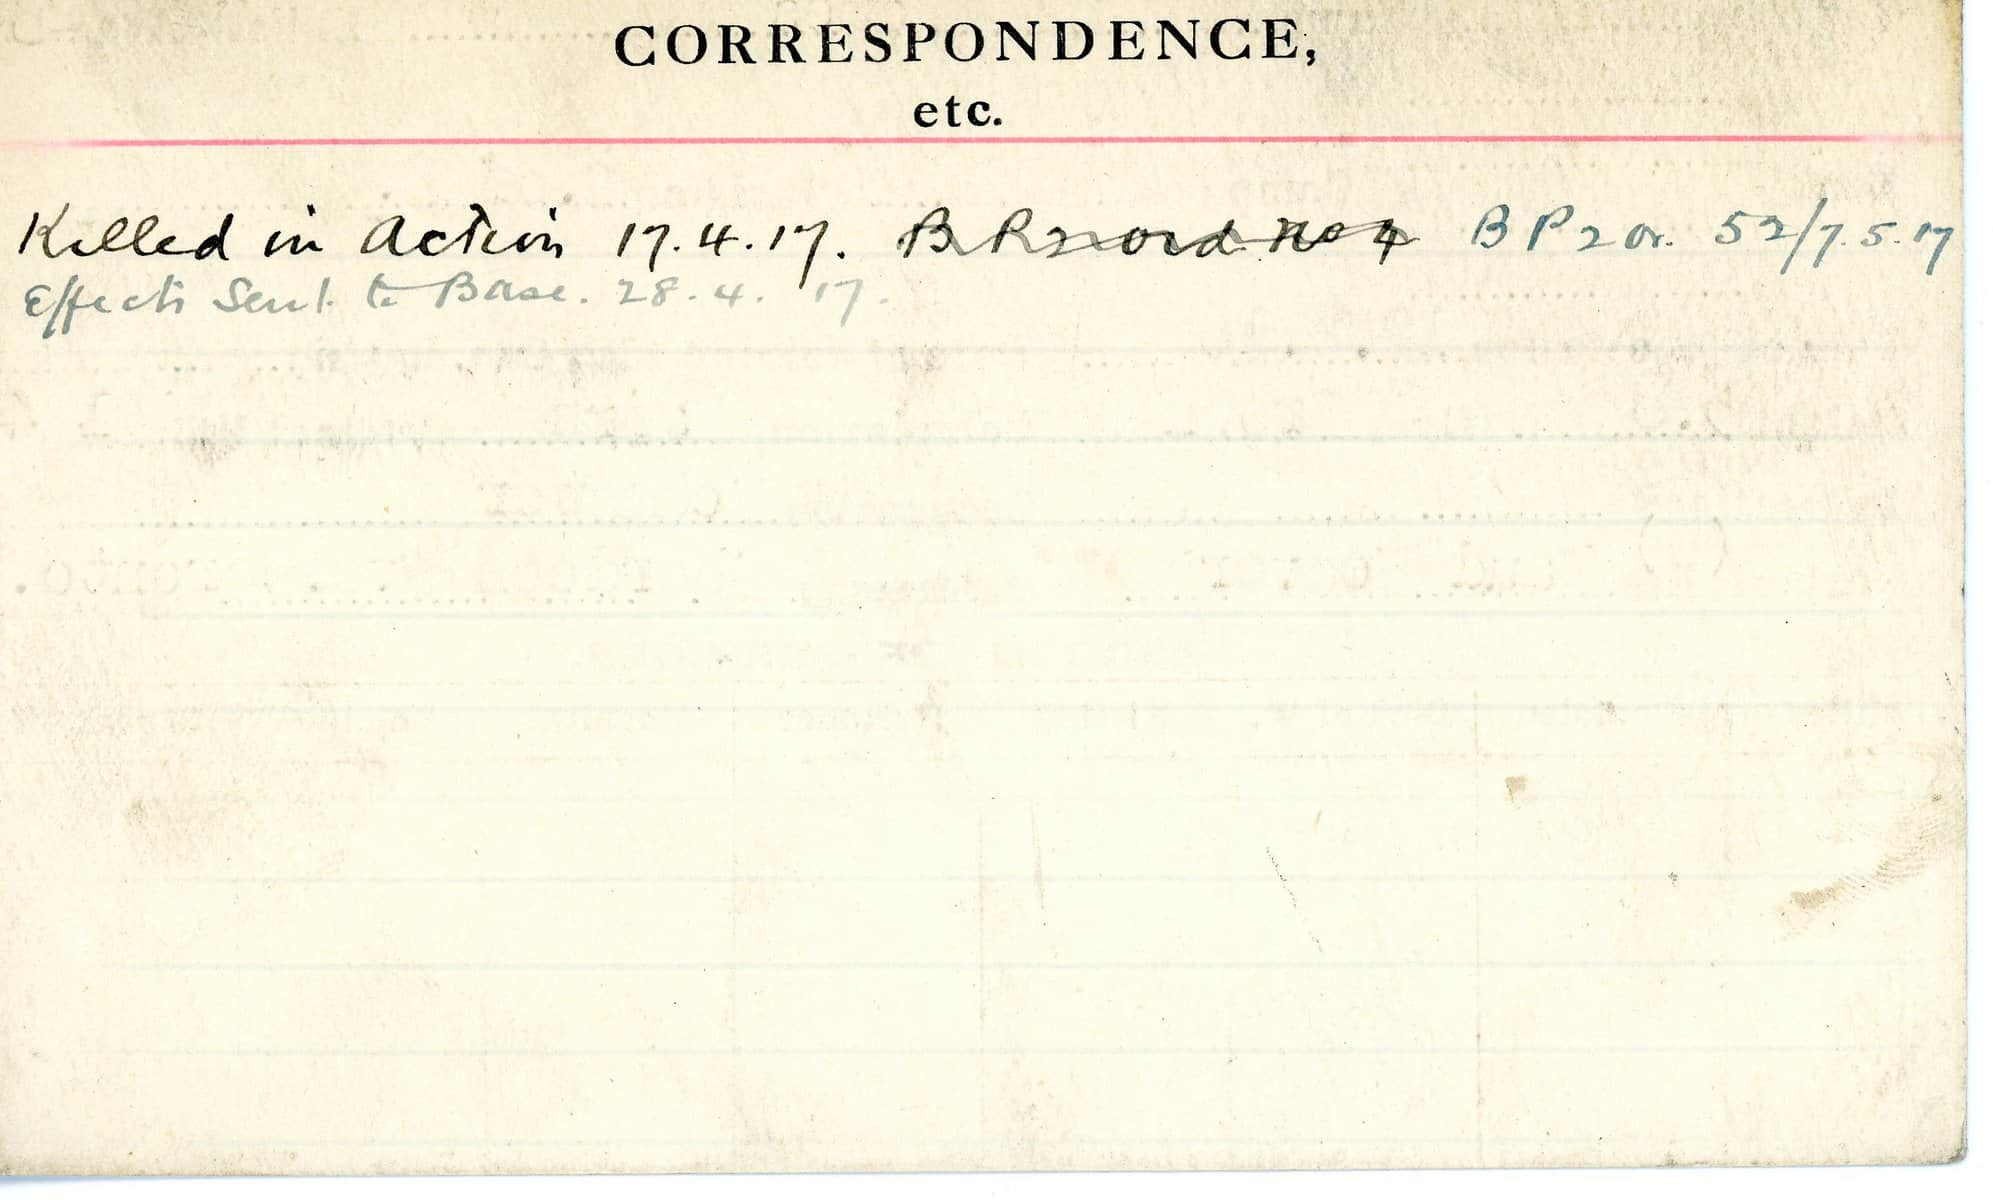 CORRESPONDENCE,
etc.
Killed in Action 17.4.17. B P 2 ord no 4 B P 2 or. 52/7.5.17
Effects Sent to Base. 28.4. 17.